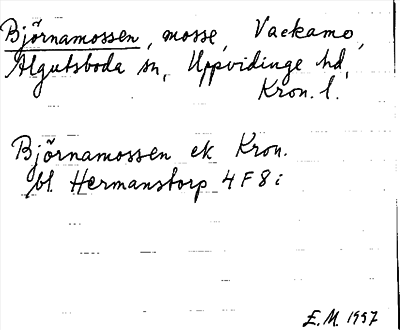 Björnamossen, mosse, Vackamo,
Algutsboda sn, Uppvidinge hd,
Kron. l.
Björnamossen ek Kron.
bl. Hermanstorp 4 F 8 i
E.M. 1997